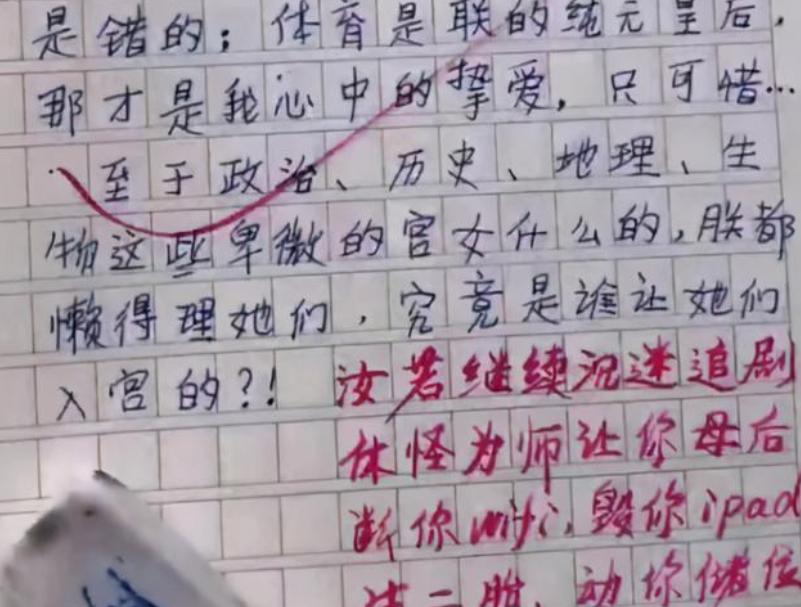 是错的；体育是朕的纯元皇后，
那才是我心中的挚爱，只可惜…
至于政治、历史、地理、生
物这些卑微的宫女什么的，朕都
懒得理她们，究竟是谁让她们
入宫的？！ 汝若继续沉迷追剧
休怪为师让你母后
断你wifi，毁你ipad
生二胎，动你储位